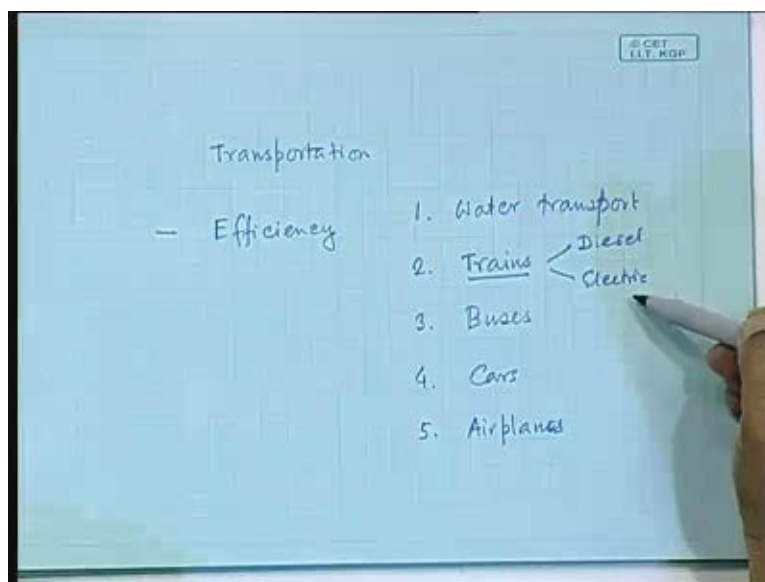 © CET
I.I.T. KGP
Transportation
— Efficiency
1. Water transport
2. Trains
Diesel
Electric
3. Buses
4. Cars
5. Airplanes